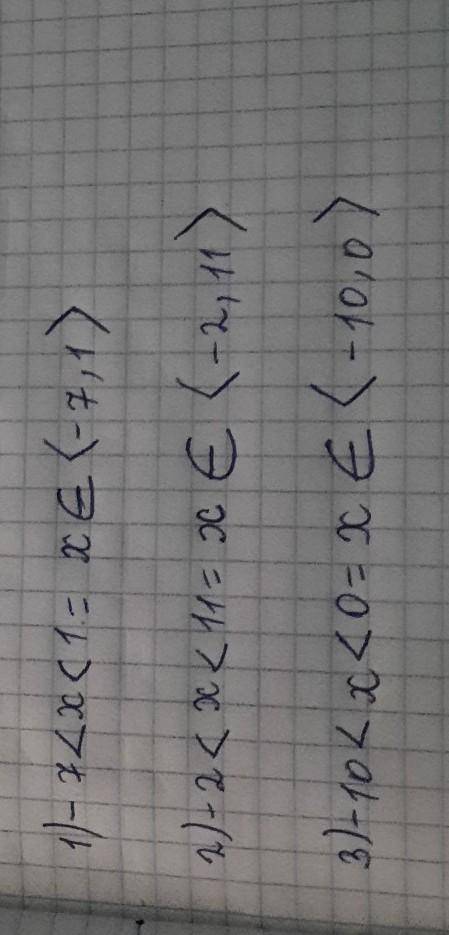 1) -7<x<1 = x ∈ ⟨-7, 1⟩
2) -2<x<11 = x ∈ ⟨-2, 11⟩
3) -10<x<0 = x ∈ ⟨-10, 0⟩